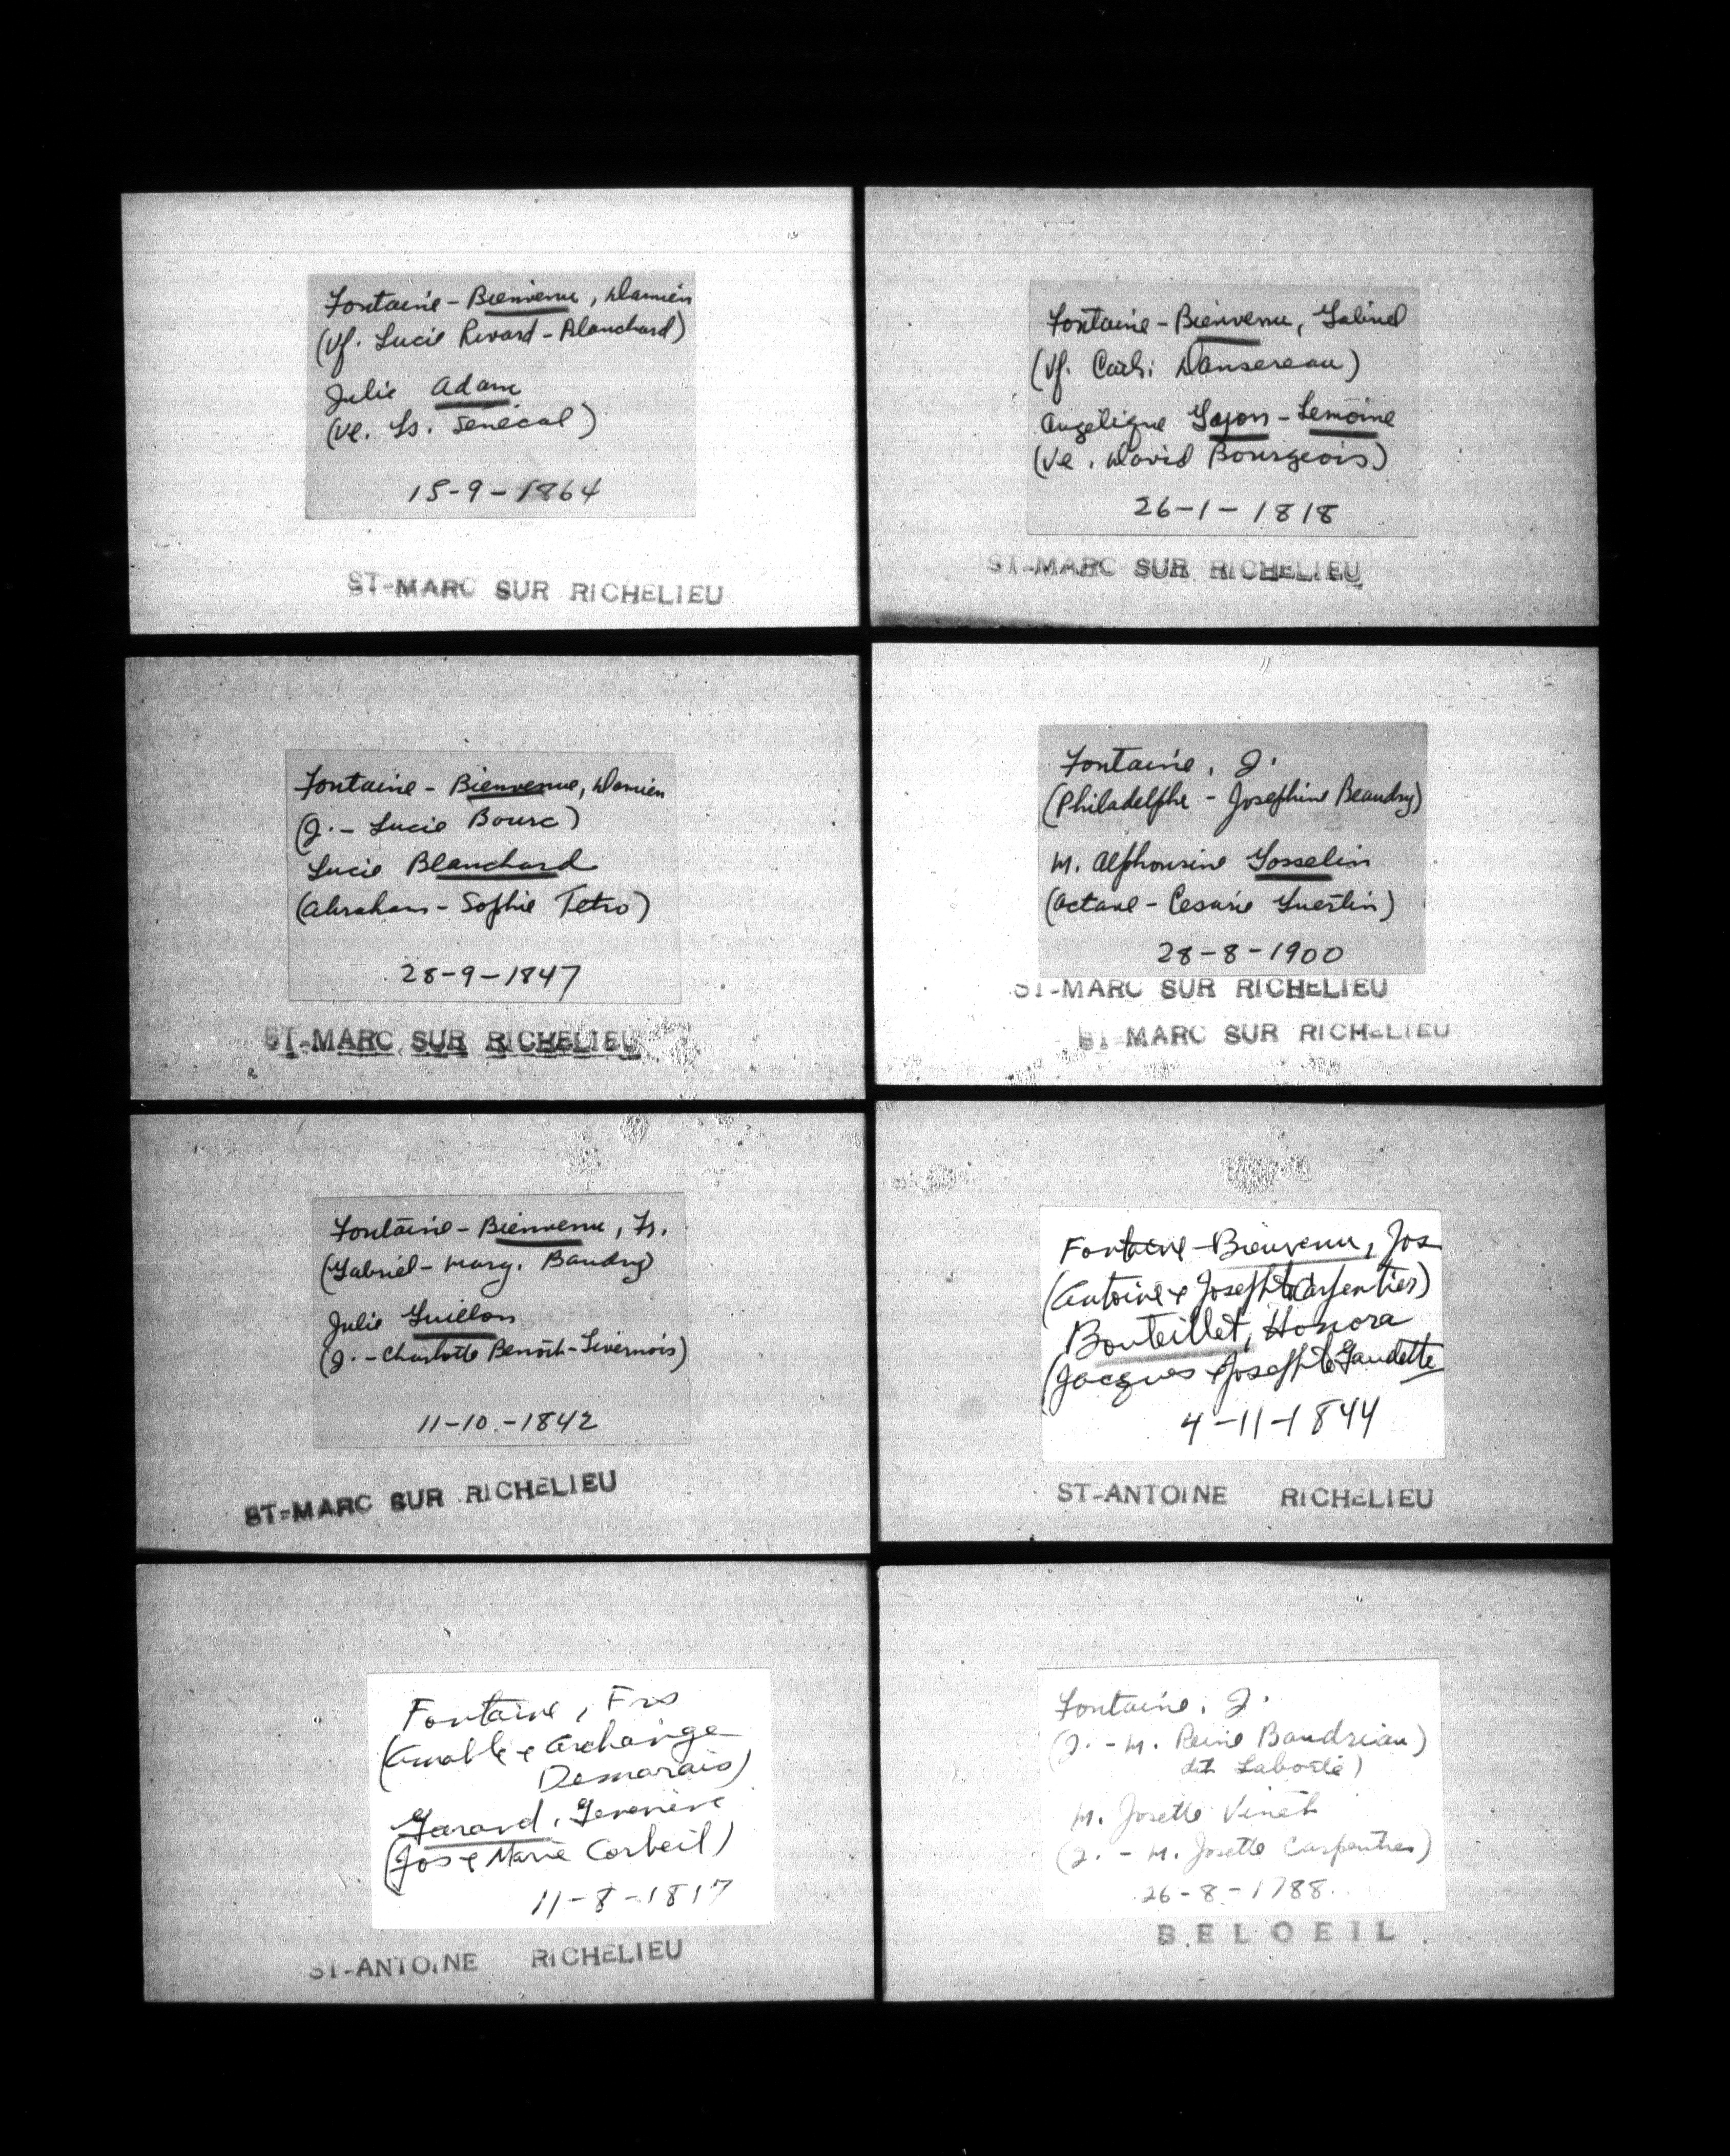 Fontaine - Bienvenu, Damien
(Vf. Lucie Rivard - Blanchard)
Julie Adam
(Ve. Ls. Senécal)
15-9-1864
ST-MARC SUR RICHELIEU
Fontaine - Bienvenu, Gabriel
(Vf. Cath: Dansereau)
Angélique Gajon - Lemoine
(Ve. David Bourgeois)
26-1-1818
ST-MARC SUR RICHELIEU
Fontaine - Bienvenue, Damien
(J. - Lucie Bourc)
Lucie Blanchard
(Abraham - Sophie Tetro)
28-9-1847
ST-MARC SUR RICHELIEU
Fontaine, J.
(Philadelphe - Josephine Beaudry)
M. Alphonsine Gosselin
(Octave - Cesarie Guertin)
28-8-1900
ST-MARC SUR RICHELIEU
ST-MARC SUR RICHELIEU
Fontaine - Bienvenu, Fs.
(Gabriel - Marg. Baudry)
Julie Guillon
(J. - Charlotte Benoît-Livernois)
11-10-1842
ST-MARC SUR RICHELIEU
Fontaine - Bienvenu, Jos
(Antoine & Josephte Carpentier)
Bouteillet, Honora
(Jacques & Josephte Gaudette
4-11-1844
ST-ANTOINE RICHELIEU
Fontaine, Frs
(Amable & Archange
Desmarais)
Garand, Geneviève
(Jos & Marie Corbeil)
11-8-1817
ST-ANTOINE RICHELIEU
Fontaine, J.
(J. - M. Reine Baudriau)
dit Laboété)
M. Josette Vinet
(J. - M. Josette Carpentier)
26-8-1788
BELOEIL